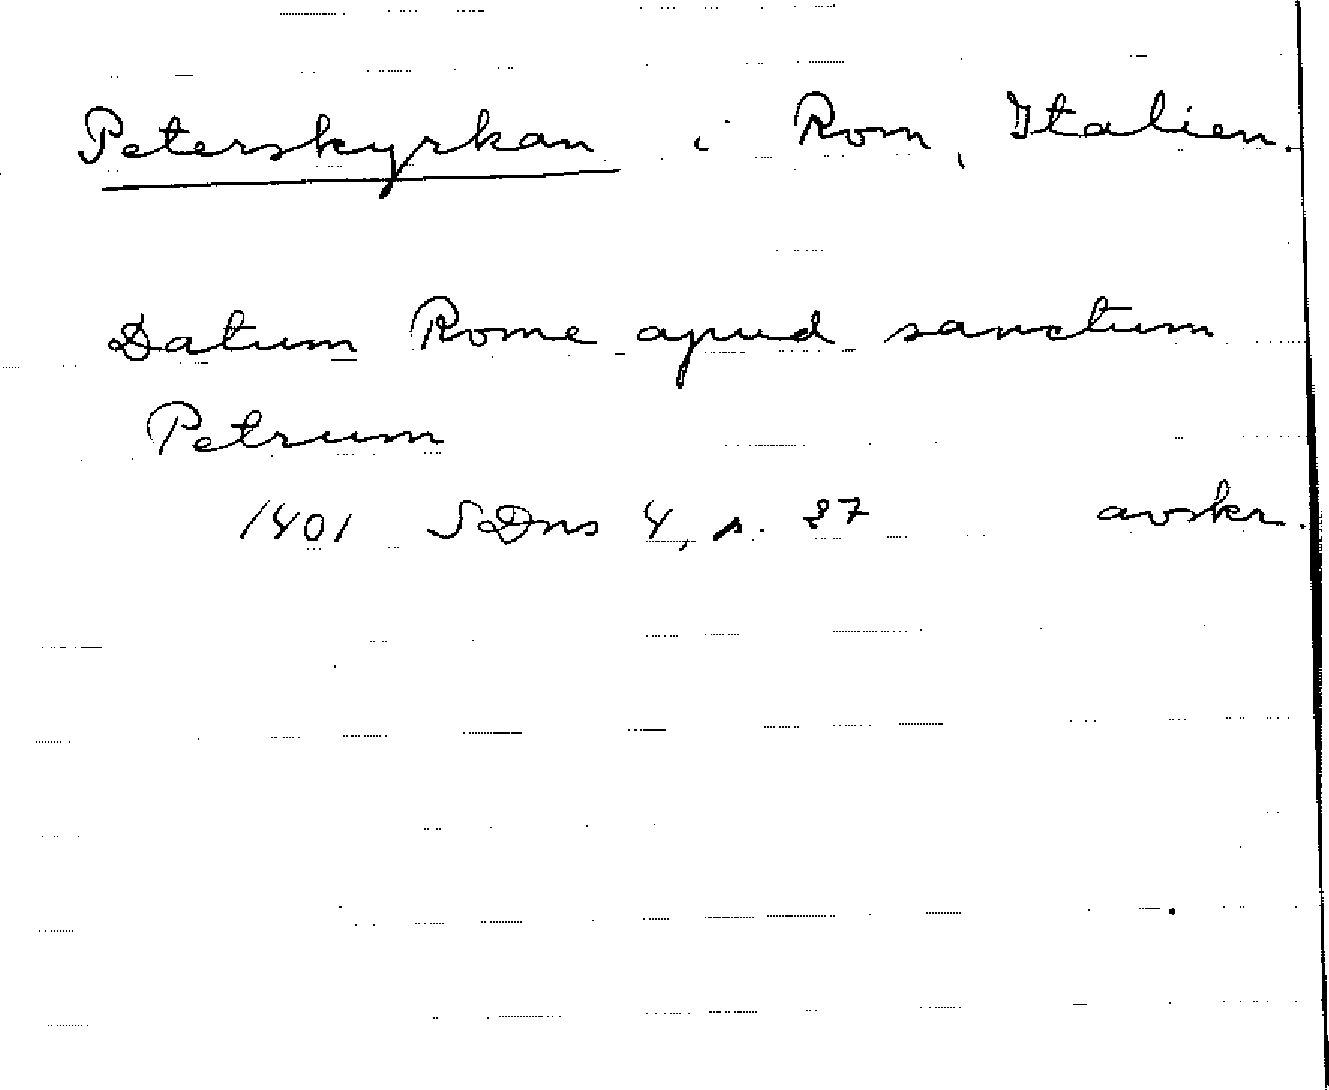 Peterskyrkan i Rom, Italien.
Datum Rome apud sanctum
Petrum
1401 SDns 4, s. 37 avskr.